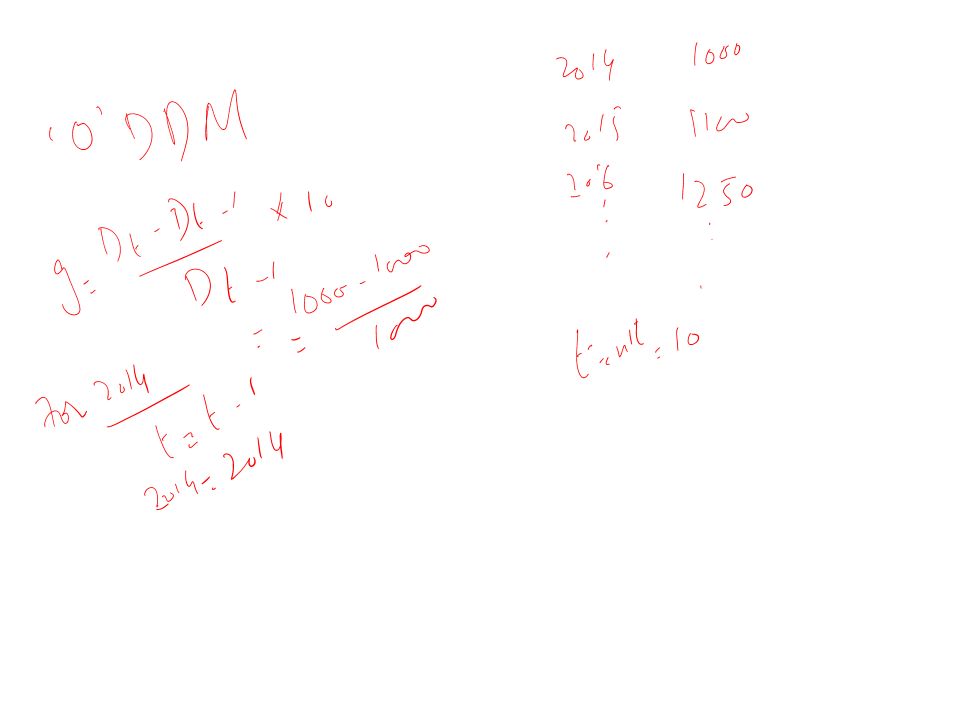 '0' DDM
g = Dt - Dt-1 / Dt-1 × 10
= = 1000 - 1000 / 1000
For 2014
t = t-1
2014 = 2014
2014 1000
2015 1100
2016 1250
= 10